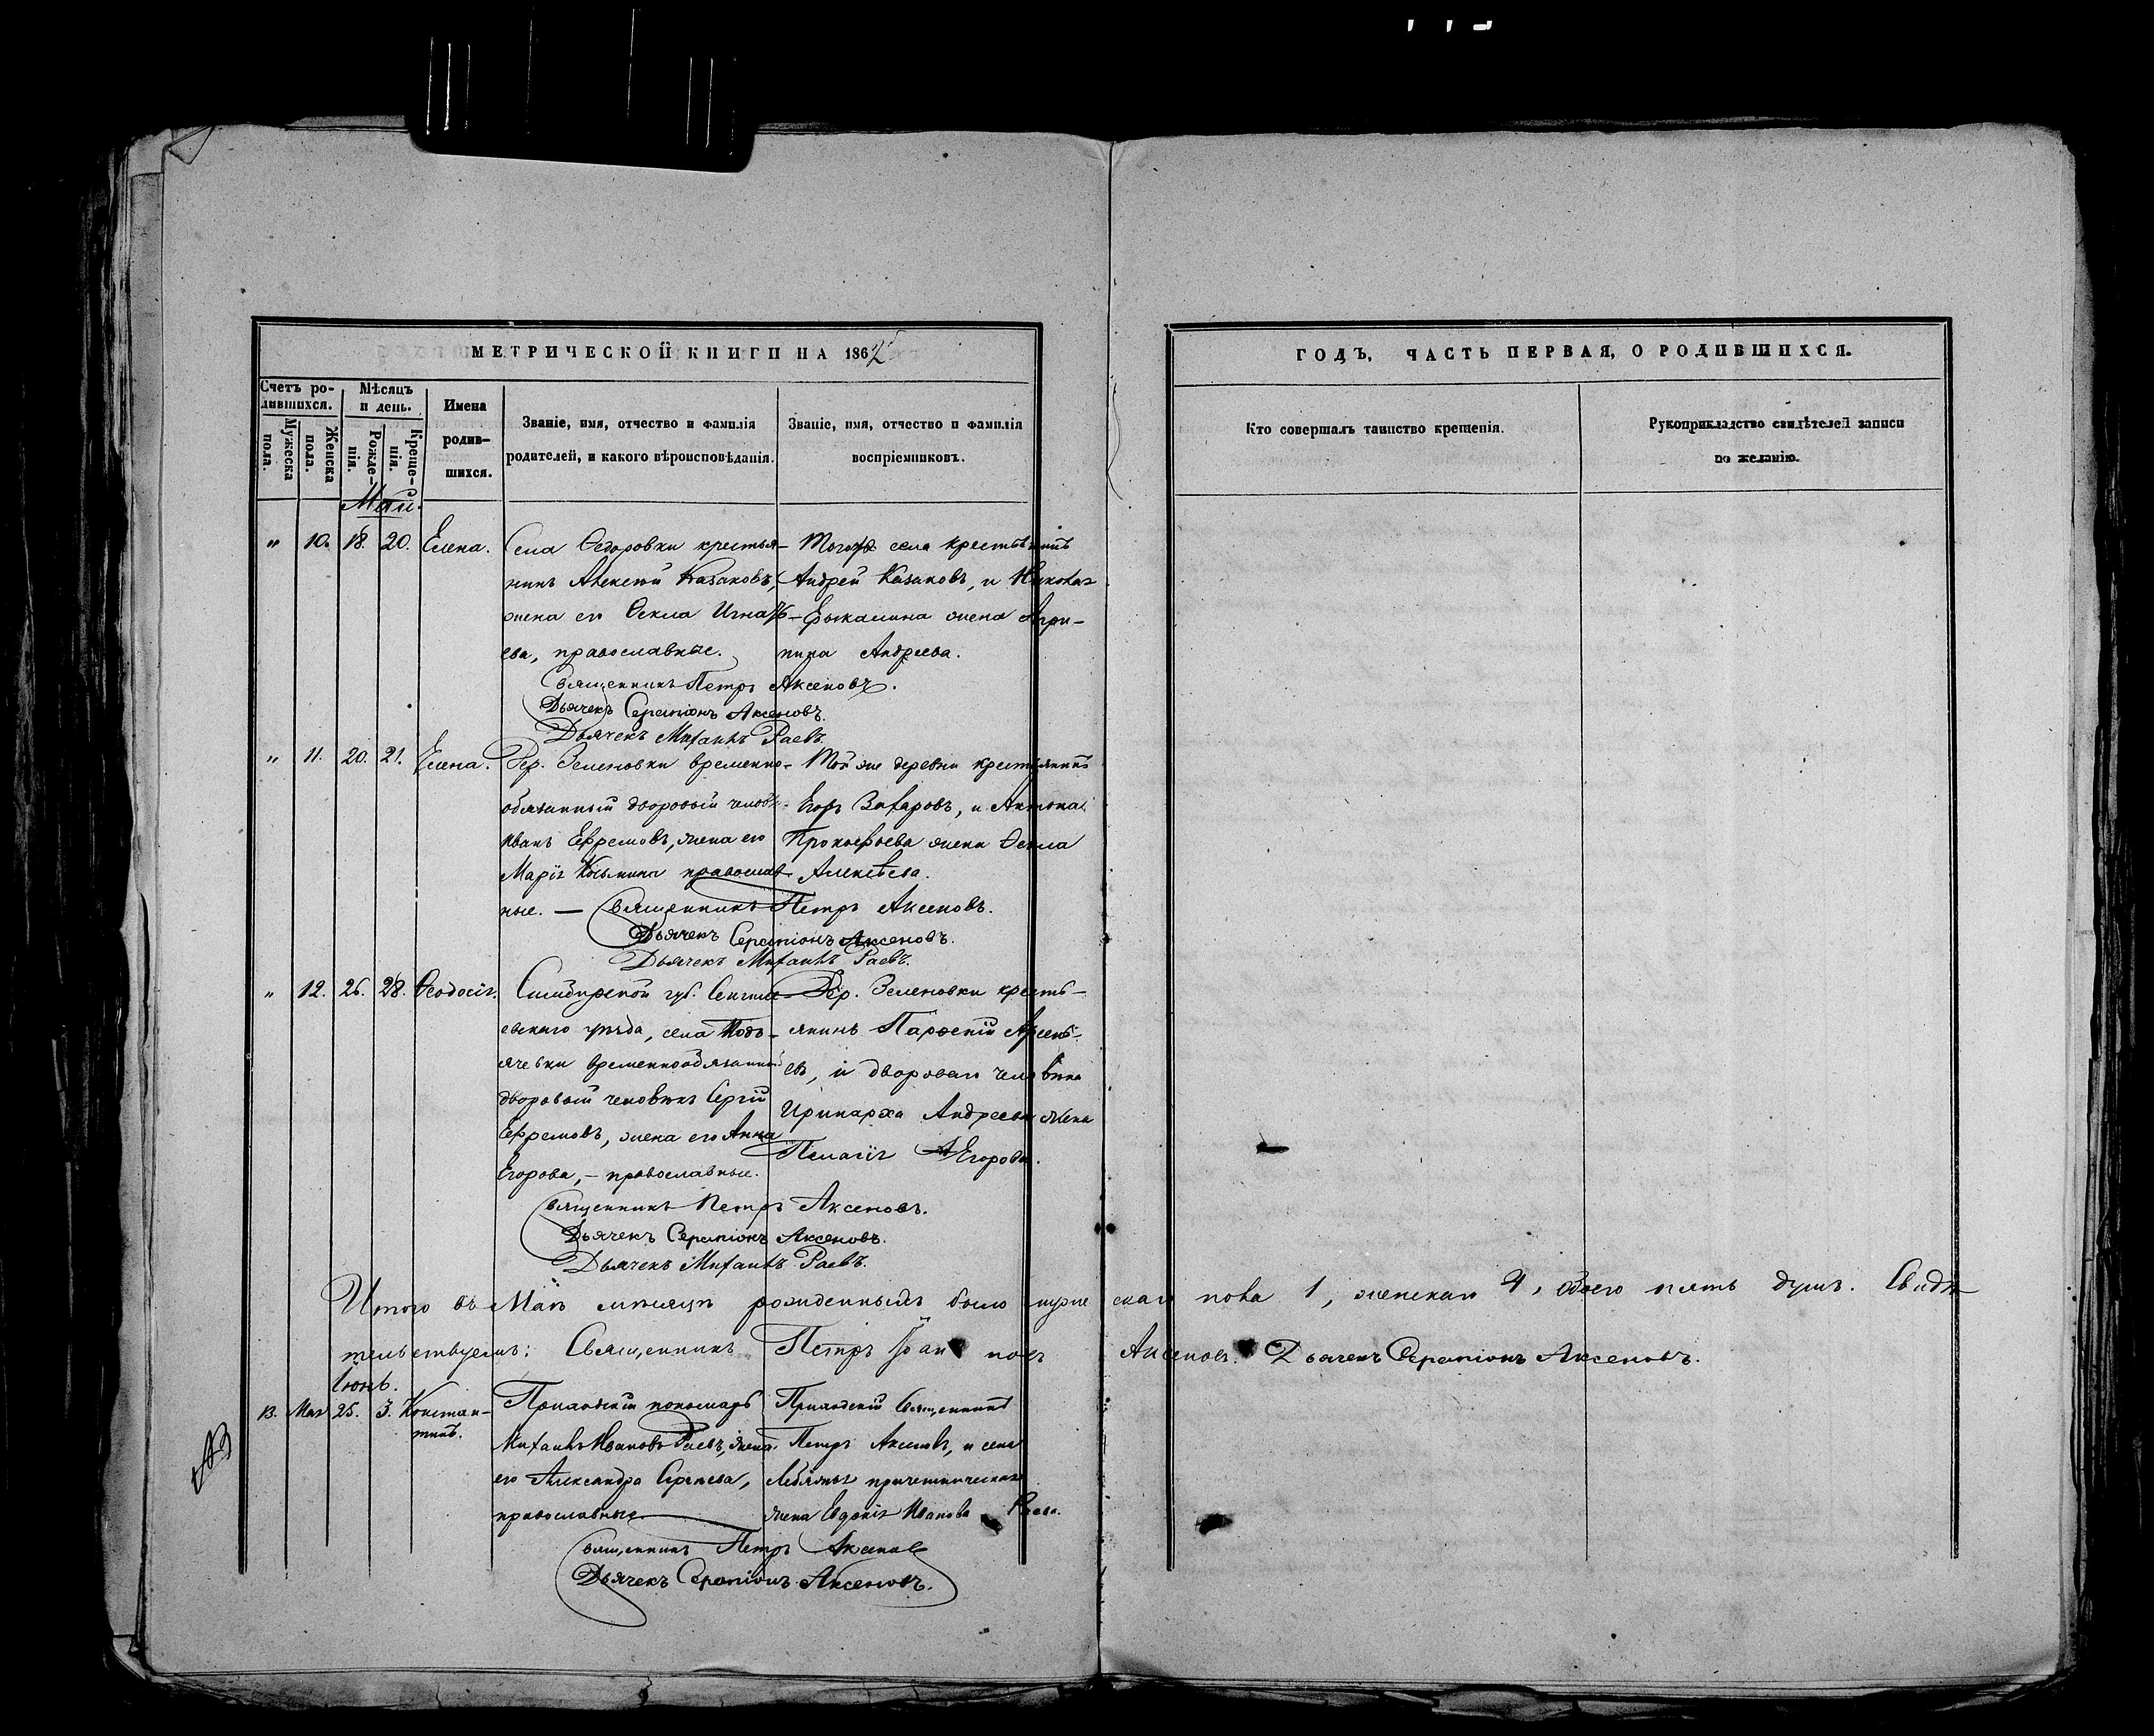 МЕТРИЧЕСКОЙ КНИГИ НА 1862
Счетъ ро-
дившихся.
Мѣсяцъ
и день.
Имена
родив-
шихся.
Званіе, имя, отчество и фамилія
родителей, и какого вѣроисповѣданія.
Званіе, имя, отчество и фамилія
воспріемниковъ.
Мужеска
пола.
Женска
пола.
Рожде-
нія.
Креще-
нія.
Май.
" 10. 18. 20. Елена.
Села Ѳедоровки крестья-
нинъ Алексѣй Казаковъ,
жена его Ѳекла Игнать-
ева, православные.
Тогоже села крестьянинъ
Андрей Казаковъ, и
жена Агри-
пина Андреева.
Священникъ Петръ Аксеновъ.
Дьячекъ Серапіонъ Аксеновъ.
Дьячекъ Михаилъ Раевъ.
" 11. 20. 21. Елена.
Дер. Зеленовки временно-
обязанный дворовый человѣкъ
Иванъ Ефремовъ, жена его
Марія Козьмина православ-
ные. —
Той же деревни крестьянинъ
Егоръ Захаровъ, и Антона
Прокофьева жена Ѳекла
Алексѣева.
Священникъ Петръ Аксеновъ.
Дьячекъ Серапіонъ Аксеновъ.
Дьячекъ Михаилъ Раевъ.
" 12. 26. 28. Ѳеодосія.
Симбирской губ. Сенгиле-
евскаго уѣзда, села Подъ-
ячевки временнообязанный
дворовый человѣкъ Сергій
Ефремовъ, жена его Анна
Егорова, — православные.
Дер. Зеленовки кресть-
янинъ Парѳеній Арсень-
евъ, и двороваго человѣка
Иринарха Андреева жена
Пелагія Егорова.
Священникъ Петръ Аксеновъ.
Дьячекъ Серапіонъ Аксеновъ.
Дьячекъ Михаилъ Раевъ.
Итого въ Маѣ мѣсяцѣ рожденныхъ было муже
тельствуемъ: Священникъ Петръ
Іюнь.
13. Мая 25. 3. Констан-
тинъ.
Приходскій пономарь
Михаилъ Ивановъ Раевъ, жена
его Александра Сергѣева,
православные
Приходскій Священникъ
Петръ Аксеновъ, и села
причетническая
жена Евдокія Иванова Раева.
Священникъ Петръ Аксеновъ
Дьячекъ Серапіонъ Аксеновъ.
ГОДЪ, ЧАСТЬ ПЕРВАЯ, О РОДИВШИХСЯ.
Кто совершалъ таинство крещенія.
Рукоприкладство свидѣтелей записи
по желанію.
скаго пола 1, женскаго 4, всего пять душъ. Свидѣ
Аксеновъ. Дьячекъ Серапіонъ Аксеновъ.